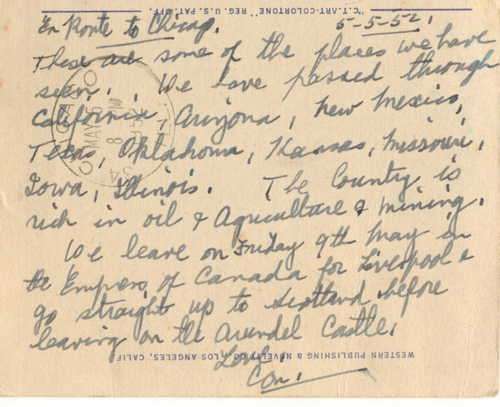 En Route to Chicago.
5-5-52.
These are some of the places we have
seen. We have passed through
California, Arizona, New Mexico,
Texas, Oklahoma, Kansas, Missouri,
Iowa, Illinois. The Country is
rich in oil & Agriculture & mining.
We leave on Friday 9th May in
the Empress of Canada for Liverpool &
go straight up to Scotland before
leaving on the Arundel Castle.
Love
Con.
"C.T. ART-COLORTONE" REG. U.S. PAT. OFF.
WESTERN PUBLISHING & NOVELTY CO., LOS ANGELES, CALIF.
MAY 5